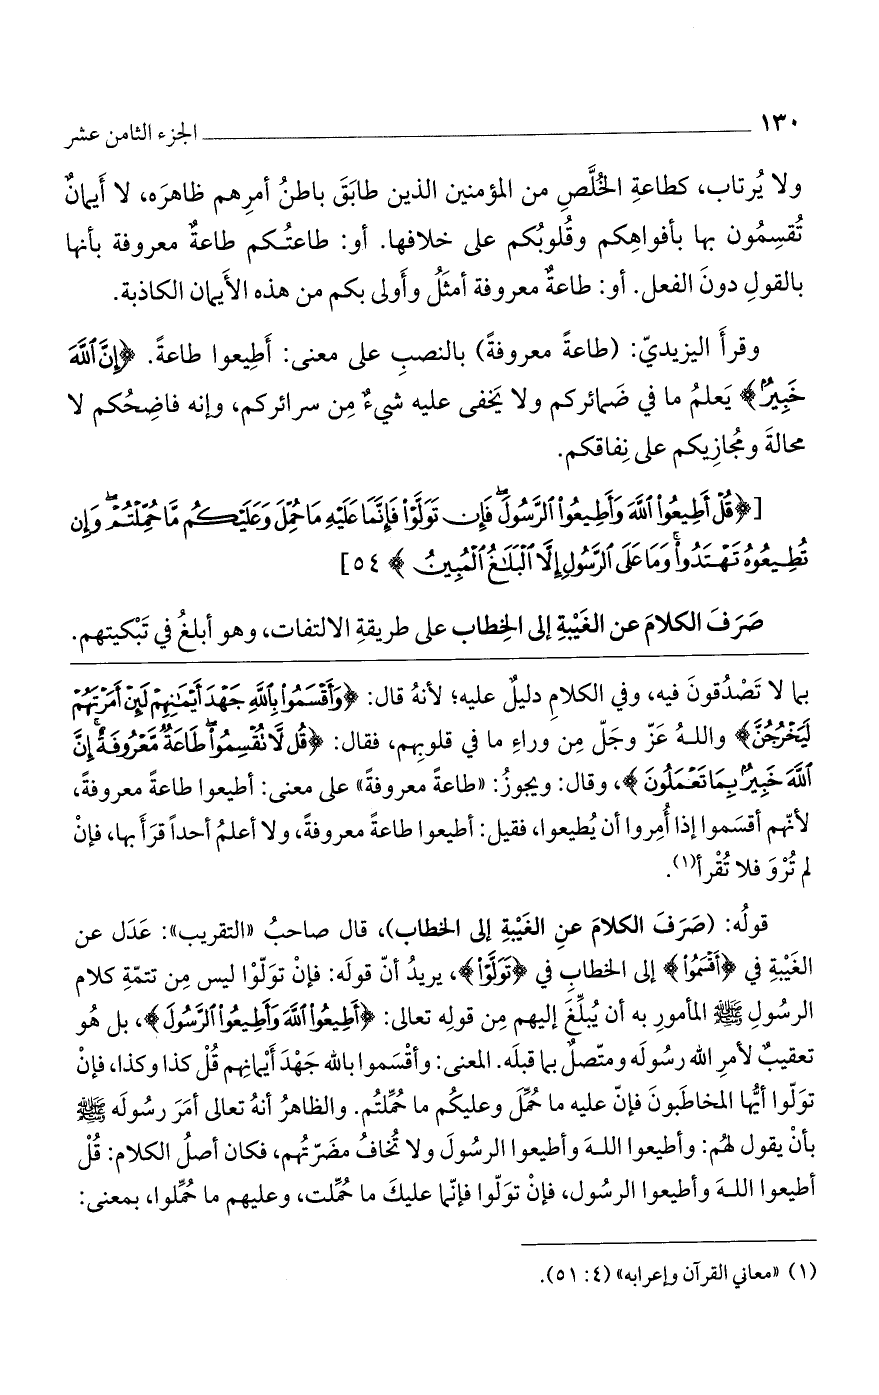 ١٣٠ الجزء الثامن عشر
ولا يُرتاب، كطاعةِ الخُلَّصِ من المؤمنين الذين طابَقَ باطنُ أمرِهم ظاهرَه، لا أَيمانٌ
تُقسِمُون بها بأفواهِكم وقُلوبُكم على خلافها. أو: طاعتُكم طاعةٌ معروفة بأنها
بالقولِ دونَ الفعل. أو: طاعةٌ معروفة أمثَلُ وأَولى بكم من هذه الأَيمان الكاذبة.
وقرأَ اليزيديّ: (طاعةً معروفةً) بالنصبِ على معنى: أَطِيعوا طاعةً. ﴿إِنَّ ٱللَّهَ
خَبِيرٌ﴾ يَعلمُ ما في ضَمائركم ولا يَخفى عليه شيءٌ مِن سرائركم، وإنه فاضِحُكم لا
محالةَ ومُجازِيكم على نِفاقكم.
[﴿قُلْ أَطِيعُوا۟ ٱللَّهَ وَأَطِيعُوا۟ ٱلرَّسُولَ ۖ فَإِن تَوَلَّوْا۟ فَإِنَّمَا عَلَيْهِ مَا حُمِّلَ وَعَلَيْكُم مَّا حُمِّلْتُمْ ۖ وَإِن
تُطِيعُوهُ تَهْتَدُوا۟ ۚ وَمَا عَلَى ٱلرَّسُولِ إِلَّا ٱلْبَلَٰغُ ٱلْمُبِينُ﴾ ٥٤]
صَرَفَ الكلامَ عن الغَيْبةِ إلى الخِطاب على طريقةِ الالتفات، وهو أبلغُ في تَبْكيتهم.
بما لا تَصْدُقونَ فيه، وفي الكلامِ دليلٌ عليه؛ لأنهُ قال: ﴿وَأَقْسَمُوا۟ بِٱللَّهِ جَهْدَ أَيْمَٰنِهِمْ لَئِنْ أَمَرْتَهُمْ
لَيَخْرُجُنَّ﴾ واللهُ عَزّ وجَلّ مِن وراءِ ما في قلوبِهم، فقال: ﴿قُل لَّا تُقْسِمُوا۟ ۖ طَاعَةٌ مَّعْرُوفَةٌ ۚ إِنَّ
ٱللَّهَ خَبِيرٌۢ بِمَا تَعْمَلُونَ﴾، وقال: ويجوزُ: «طاعةً معروفةً» على معنى: أطيعوا طاعةً معروفةً،
لأنّهم أقسَموا إذا أُمِروا أن يُطيعوا، فقيل: أطيعوا طاعةً معروفةً، ولا أعلمُ أحداً قرَأَ بها، فإنْ
لم تُرْوَ فلا تُقْرأ(١).
قولُه: (صَرَفَ الكلامَ عنِ الغَيْبةِ إلى الخطاب)، قال صاحبُ «التقريب»: عَدَل عن
الغَيْبةِ في ﴿أَقْسَمُوا۟﴾ إلى الخطابِ في ﴿تَوَلَّوْا۟﴾، يريدُ أنّ قولَه: فإنْ تولّوْا ليس مِن تتمّةِ كلام
الرسُولِ ﷺ المأمورِ به أن يُبلِّغَ إليهم مِن قولِه تعالى: ﴿أَطِيعُوا۟ ٱللَّهَ وَأَطِيعُوا۟ ٱلرَّسُولَ﴾، بل هُو
تعقيبٌ لأمرِ الله رسُولَه ومتّصلٌ بما قبلَه. المعنى: وأقْسَموا بالله جَهْدَ أيْمانِهم قُلْ كذا وكذا، فإنْ
تولّوا أيُّها المخاطَبونَ فإنّ عليه ما حُمِّلَ وعليكم ما حُمِّلتُم. والظاهرُ أنهُ تعالى أمَرَ رسُولَه ﷺ
بأنْ يقولَ لهُم: وأطيعوا اللهَ وأطيعوا الرسُولَ ولا تُخافُ مضَرّتُهم، فكان أصلُ الكلام: قُلْ
أطيعوا اللهَ وأطيعوا الرسُول، فإنْ تولّوا فإنّما عليكَ ما حُمِّلت، وعليهم ما حُمِّلوا، بمعنى:
(١) «معاني القرآن وإعرابه» (٤: ٥١).